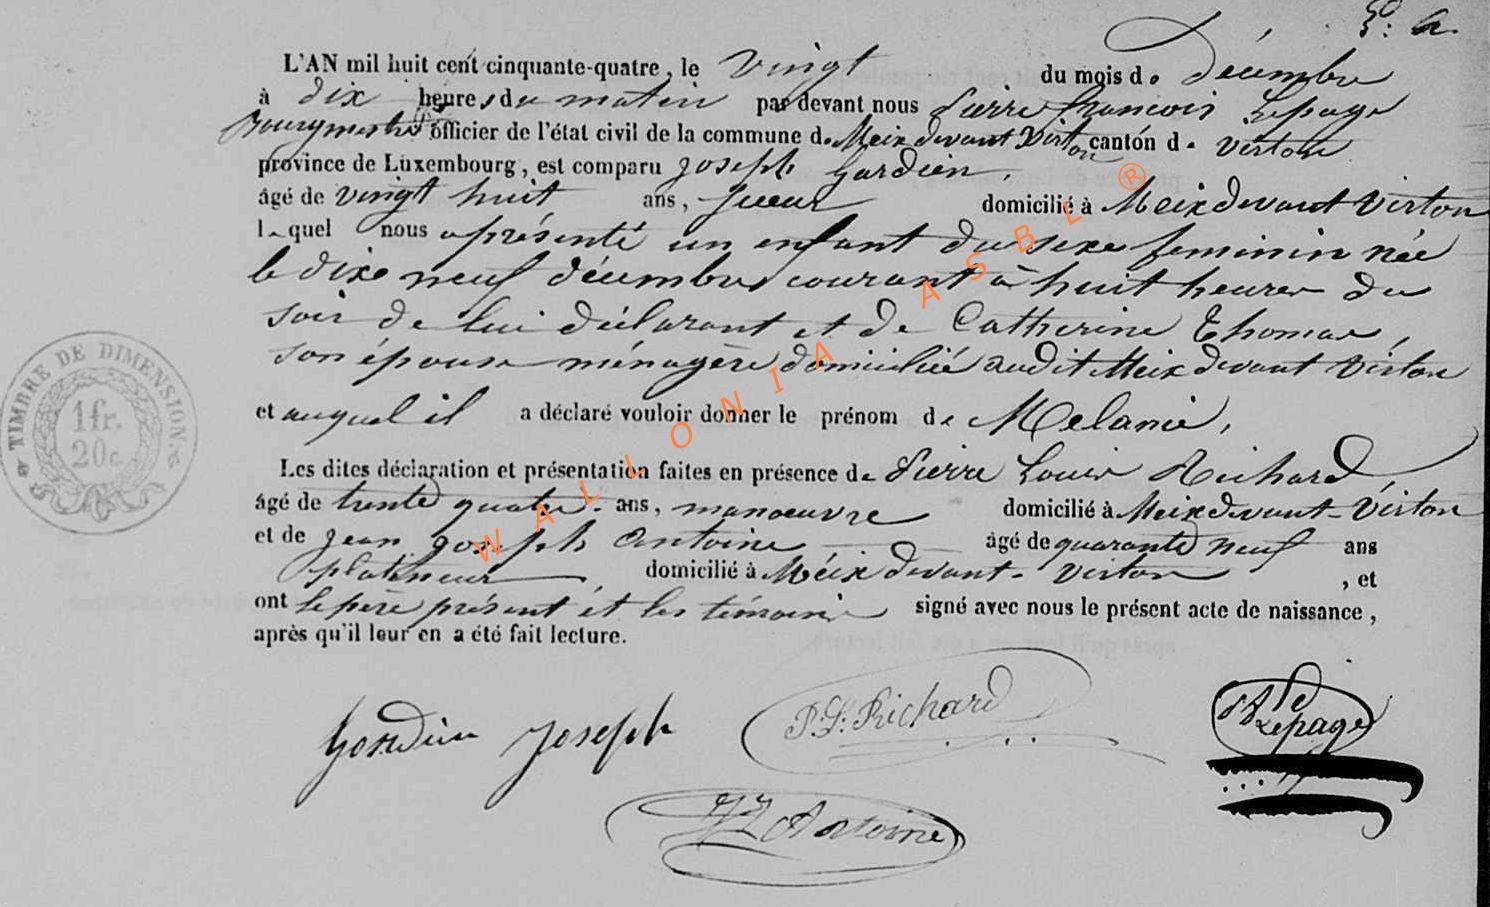 L'AN mil huit cent cinquante-quatre, le vingt du mois de décembre
à dix heures du matin par devant nous Pierre françois Lepage
Bourgmestre officier de l'état civil de la commune de Meix devant Virton canton de Virton
province de Luxembourg, est comparu joseph Gardien,
âgé de vingt huit ans, domicilié à Meix devant Virton
lequel nous a présenté un enfant du sexe feminin née
le dixe neuf décembre courant à huit heures du
soir de lui déclarant et de Catherine Thomas,
son épouse ménagère domiciliée audit Meix devant Virton
et auquel il a déclaré vouloir donner le prénom de Melanie,
Les dites déclaration et présentation faites en présence de Pierre Louis Richard,
âgé de trente quatre ans, manoeuvre domicilié à Meix devant-Virton
et de jean joseph Antoine âgé de quarante neuf ans
platineur, domicilié à Méix devant-Virton, et
ont le père présent et les témoins signé avec nous le présent acte de naissance,
après qu'il leur en a été fait lecture.
TIMBRE DE DIMENSION
1fr.
20c
Gordien joseph P. L. Richard Lepage
JJ Antoine
WALLONIA ASBL ®